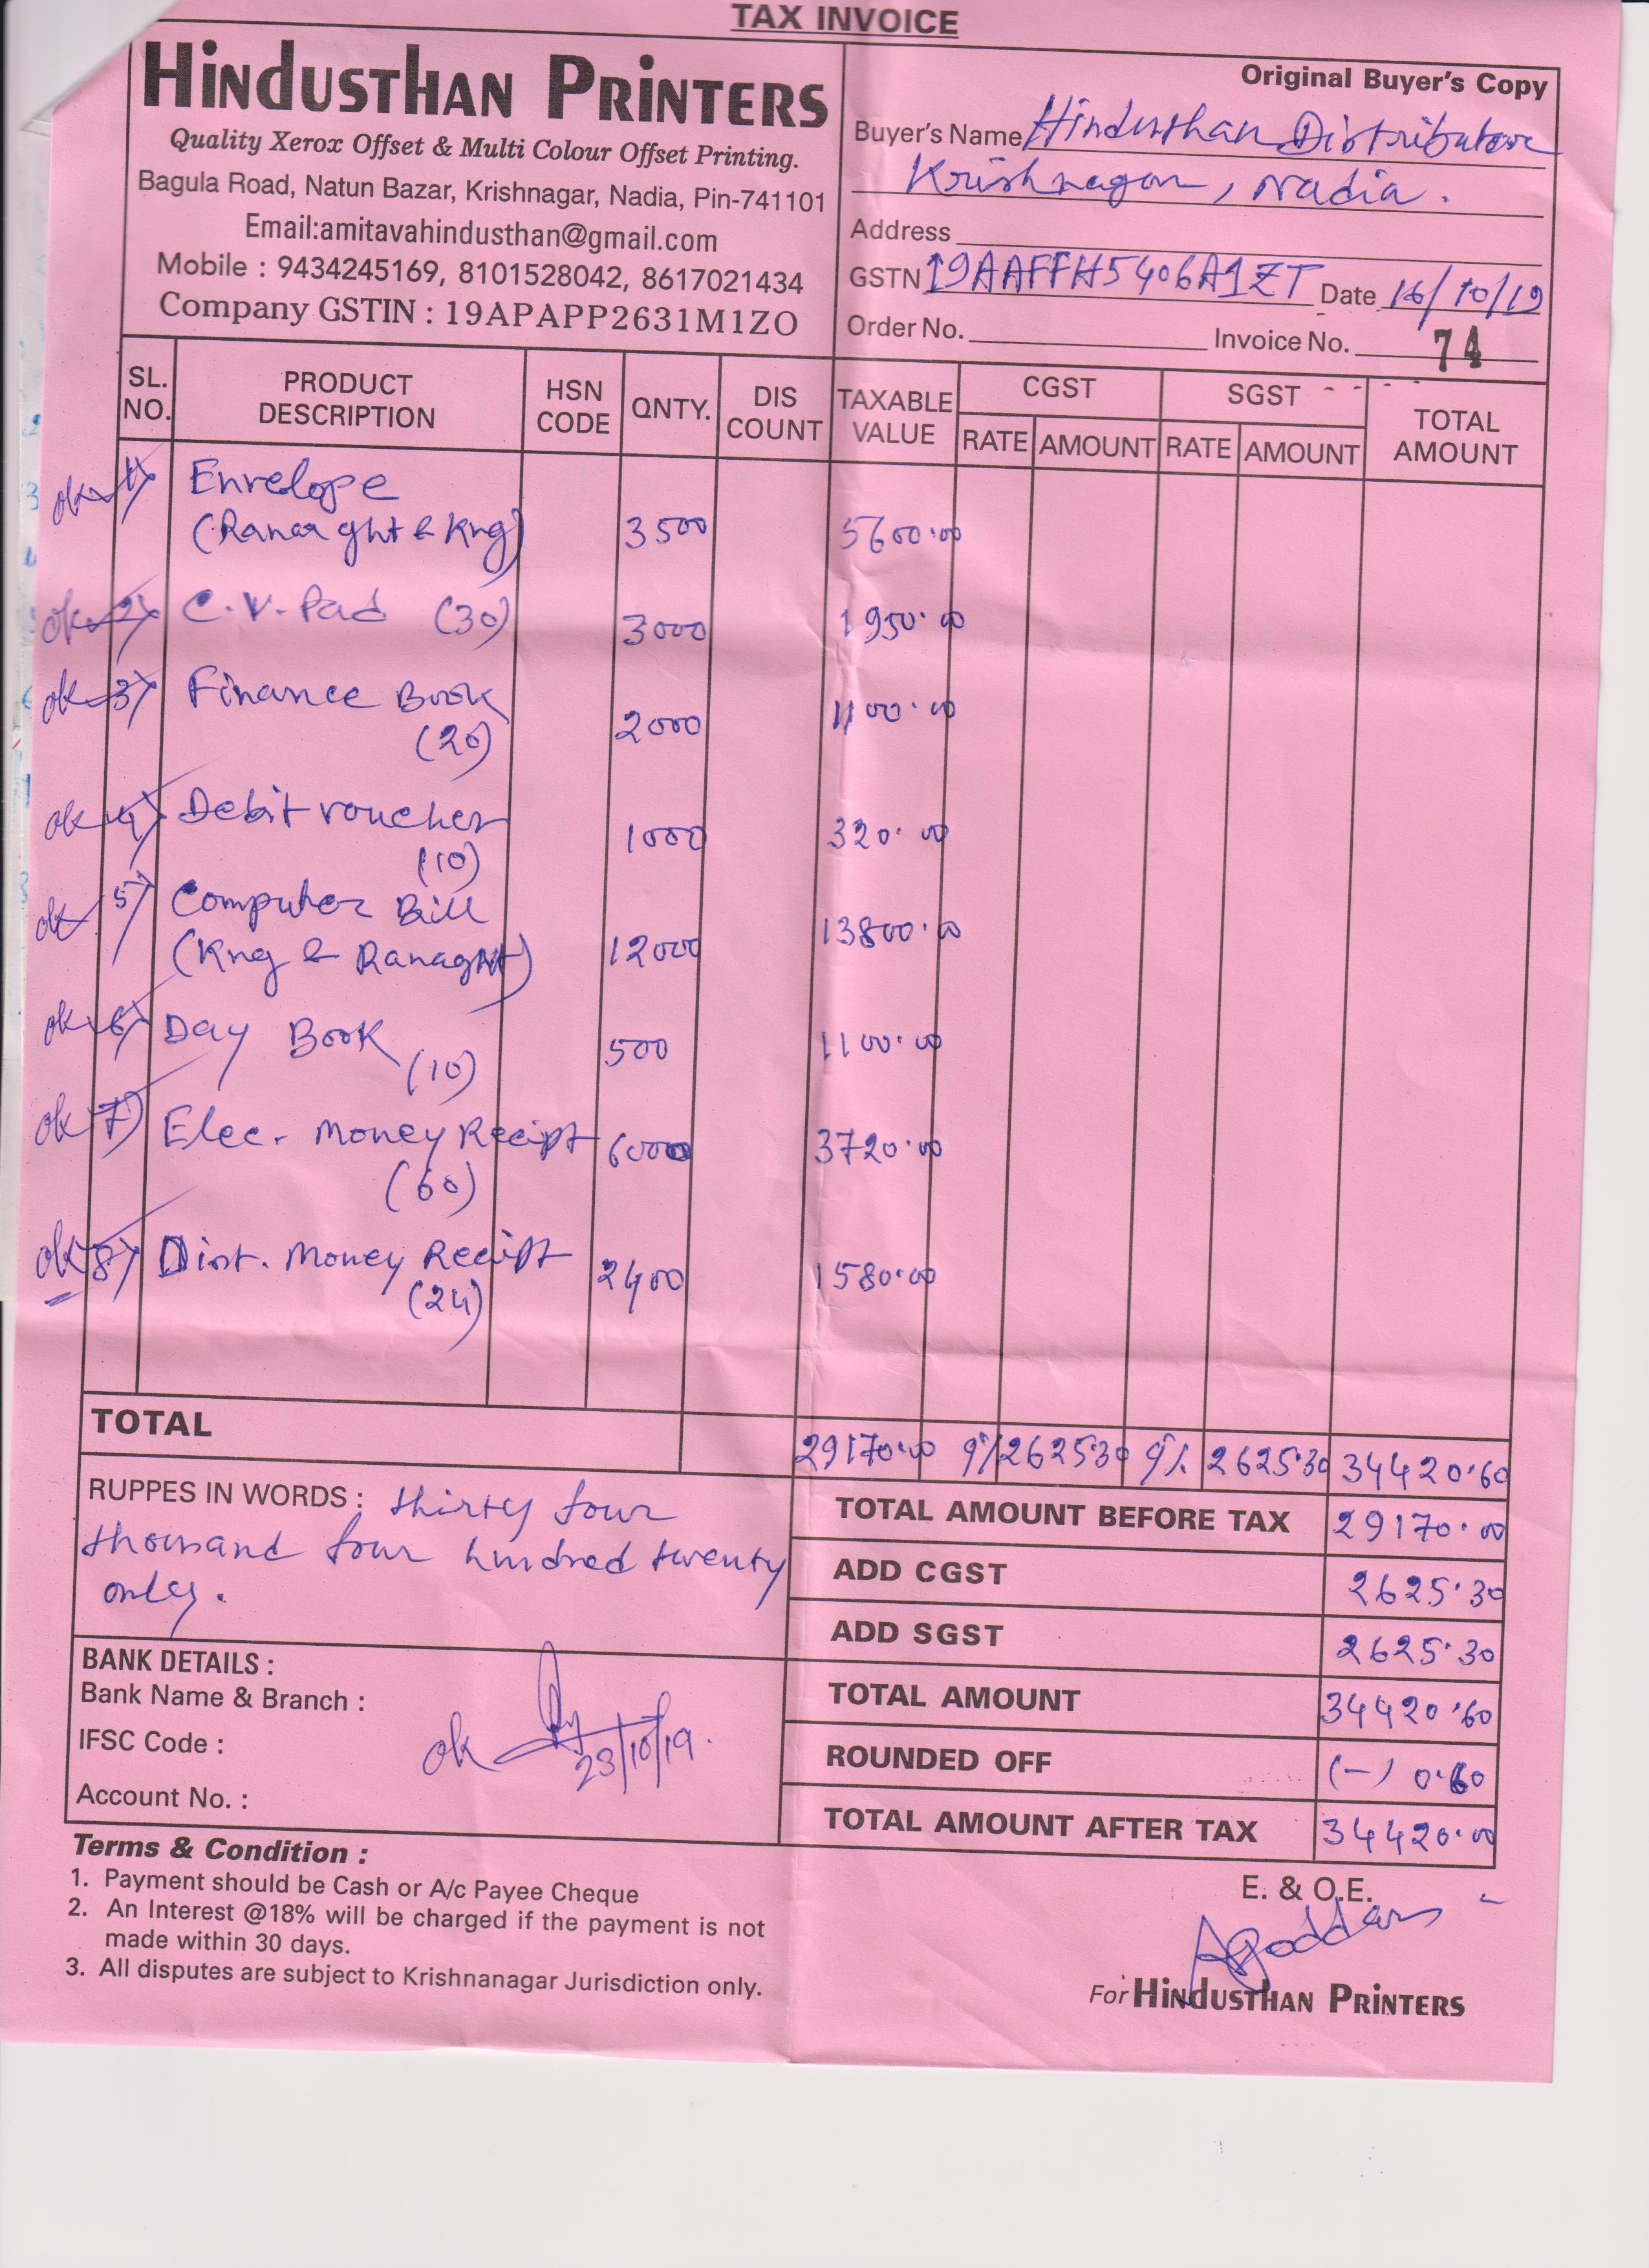 TAX INVOICE
HINDUSTHAN PRINTERS
Quality Xerox Offset & Multi Colour Offset Printing.
Bagula Road, Natun Bazar, Krishnagar, Nadia, Pin-741101
Email:amitavahindusthan@gmail.com
Mobile : 9434245169, 8101528042, 8617021434
Company GSTIN : 19APAPP2631M1ZO
Original Buyer's Copy
Buyer's Name Hindusthan Distributors
Krishnagar, Nadia.
Address
GSTN 19AAFFH5406A1ZT Date 16/10/19
Order No. Invoice No. 74
SL. NO. PRODUCT DESCRIPTION HSN CODE QNTY. DIS COUNT TAXABLE VALUE CGST RATE AMOUNT SGST RATE AMOUNT TOTAL AMOUNT
ok 1) Envelope
(Ranaght & Kng) 3500 5600.00
ok 2) C.V. Pad (30) 3000 1950.00
ok 3) Finance Book
(20) 2000 1100.00
ok 4) Debit voucher
(10) 1000 320.00
ok 5) Computer Bill
(Kng & Ranaght) 12000 13800.00
ok 6) Day Book
(10) 500 1100.00
ok 7) Elec. Money Receipt 6000 3720.00
(60)
ok 8) Dist. Money Receipt 2400 1580.00
(24)
TOTAL 29170.00 9% 2625.30 9% 2625.30 34420.60
RUPPES IN WORDS : thirty four
thousand four hundred twenty
only.
TOTAL AMOUNT BEFORE TAX 29170.00
ADD CGST 2625.30
ADD SGST 2625.30
TOTAL AMOUNT 34420.60
ROUNDED OFF (-) 0.60
TOTAL AMOUNT AFTER TAX 34420.00
BANK DETAILS :
Bank Name & Branch :
IFSC Code :
Account No. :
ok 23/10/19.
Terms & Condition :
1. Payment should be Cash or A/c Payee Cheque
2. An Interest @18% will be charged if the payment is not
made within 30 days.
3. All disputes are subject to Krishnanagar Jurisdiction only.
E. & O.E.
For HINDUSTHAN PRINTERS